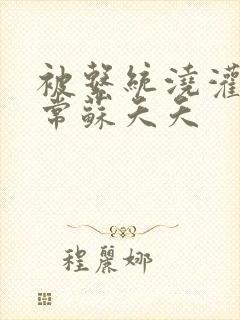 被繫統澆灌
常蘇夭夭
程麗娜